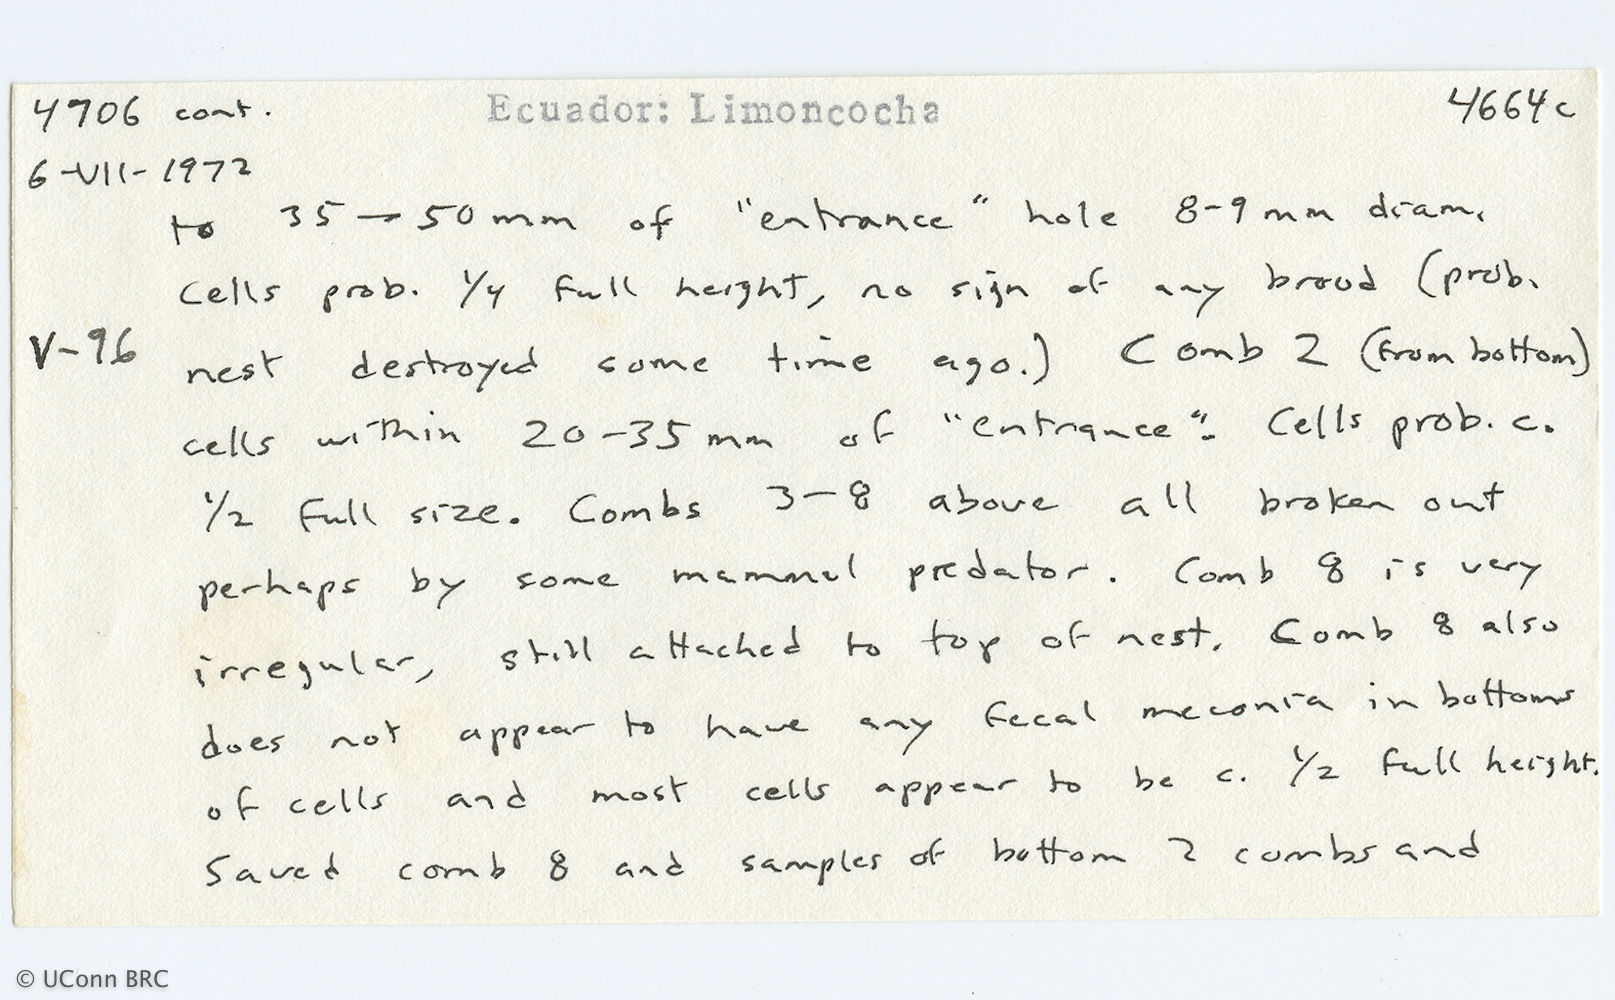 4706 cont.
Ecuador: Limoncocha
4664c
6-VII-1972
to 35 → 50 mm of "entrance" hole 8-9 mm diam.
Cells prob. 1/4 full height, no sign of any brood (prob.
V-96
nest destroyed some time ago.) Comb 2 (from bottom)
cells within 20-35 mm of "entrance". Cells prob. c.
1/2 full size. Combs 3-8 above all broken out
perhaps by some mammal predator. Comb 8 is very
irregular, still attached to top of nest. Comb 8 also
does not appear to have any fecal meconia in bottoms
of cells and most cells appear to be c. 1/2 full height.
Saved comb 8 and samples of bottom 2 combs and
© UConn BRC